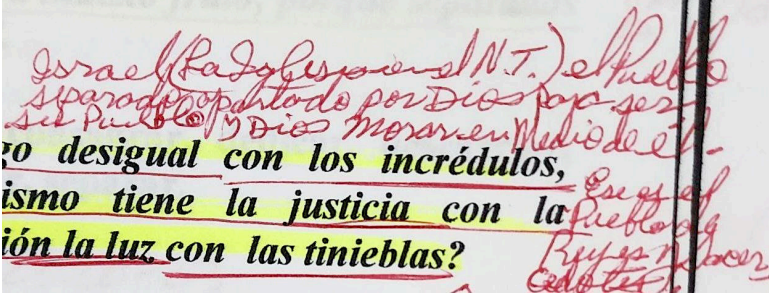 Israel (La Iglesia en el N.T.) el Pueblo
separado apartado por Dios para ser
su Pueblo y Dios Morar en Medio de él-
go desigual con los incrédulos,
ismo tiene la justicia con la
ión la luz con las tinieblas?
Ese es el
Pueblo de
Reyes y Sacer
dotes